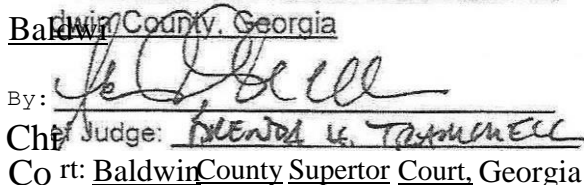 Baldwin County, Georgia
By:
Chief Judge: BRENDA H. TRAMMELL
Co rt: BaldwinCounty Supertor Court, Georgia